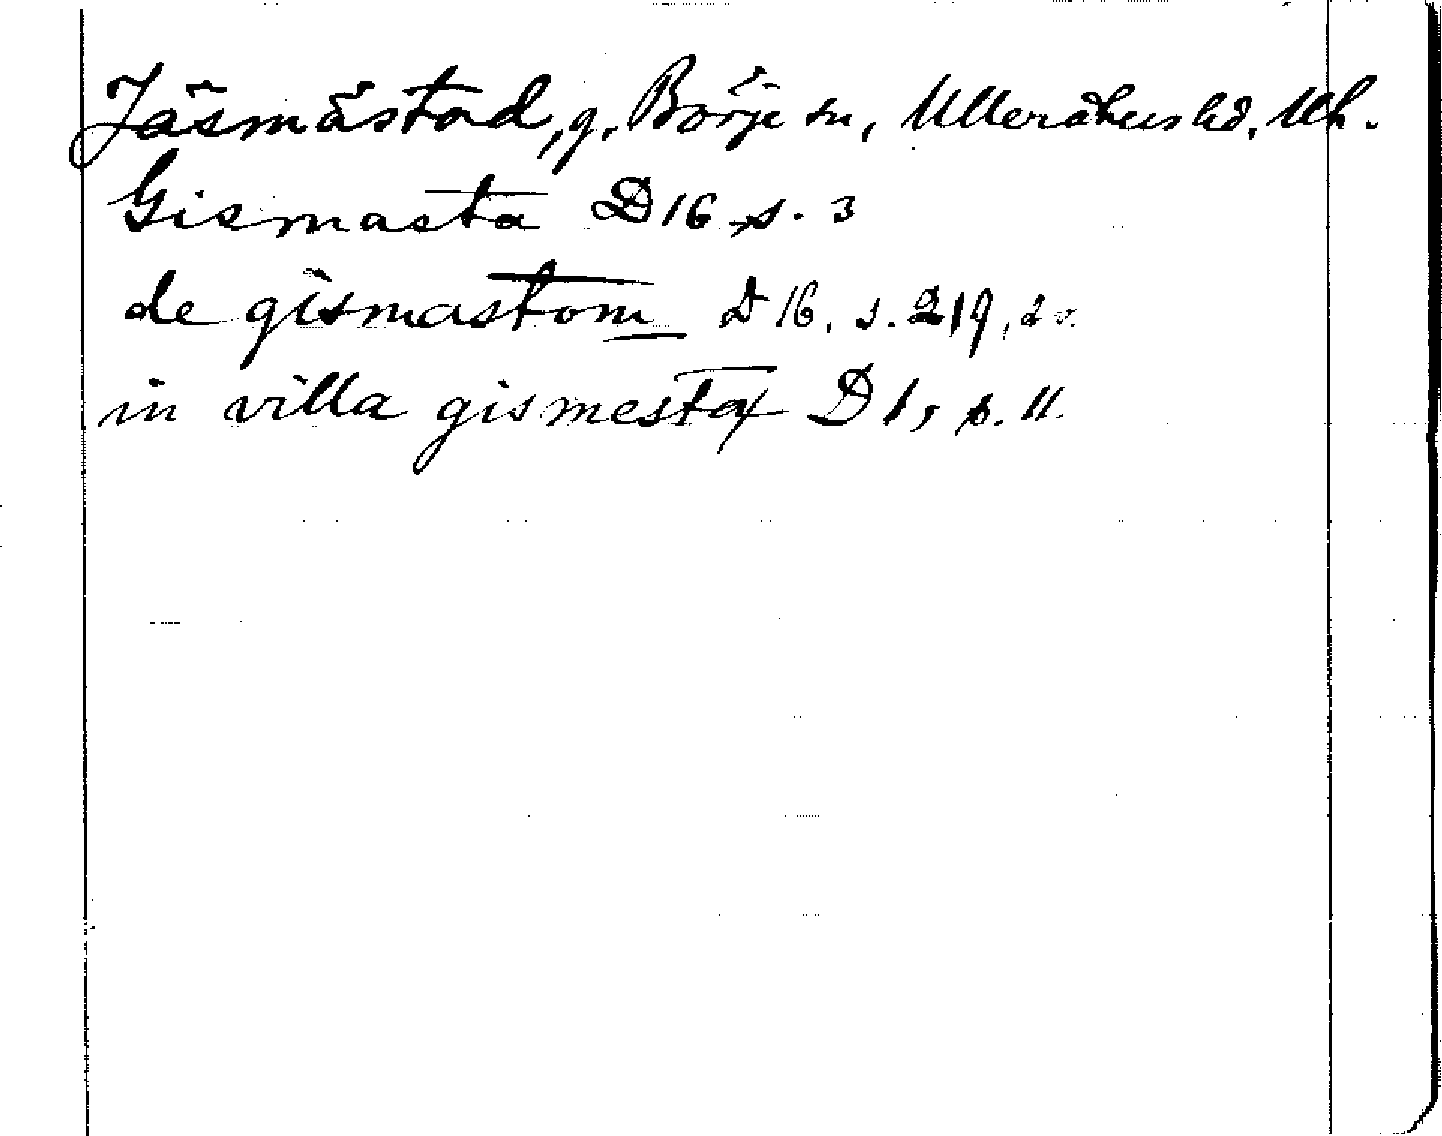 Jäsmåstad, g. Börje sn, Ulleråkers hd. Uh.
Gismasta D 16 s. 3
de gismastom D 16, s. 219,
in villa gismesta D 1, s. 11.